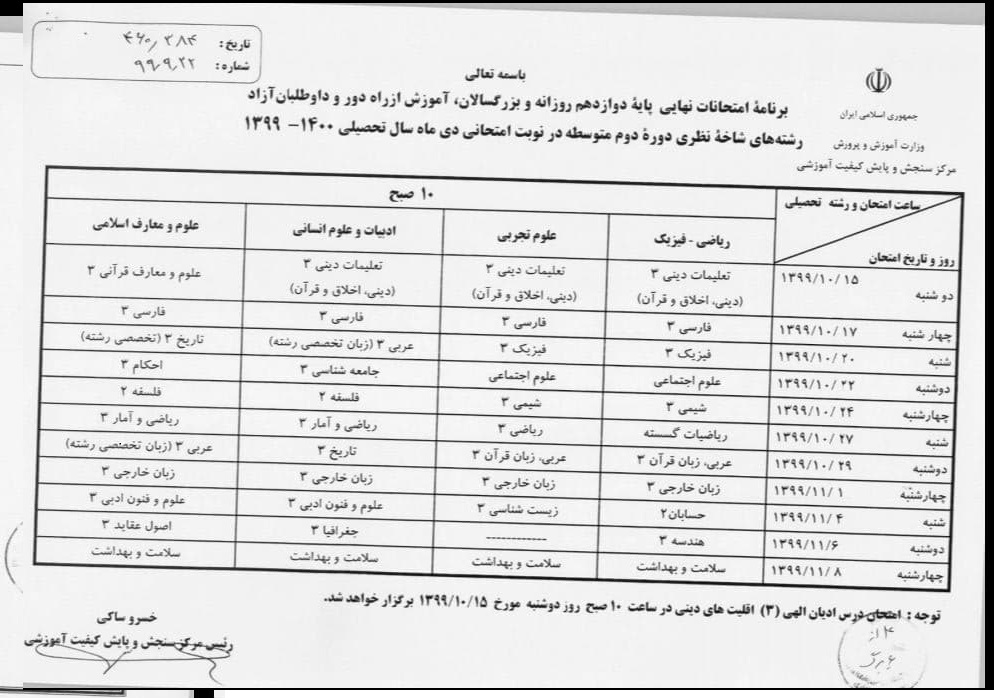 تاریخ: ۴۶۰٫۳۸۴
شماره: ۹۹٫۹٫۲۲
باسمه تعالی
جمهوری اسلامی ایران
وزارت آموزش و پرورش
مرکز سنجش و پایش کیفیت آموزشی
برنامهٔ امتحانات نهایی پایهٔ دوازدهم روزانه و بزرگسالان، آموزش ازراه دور و داوطلبان آزاد
رشته‌های شاخهٔ نظری دورهٔ دوم متوسطه در نوبت امتحانی دی ماه سال تحصیلی ۱۴۰۰- ۱۳۹۹
ساعت امتحان و رشته تحصیلی ۱۰ صبح
روز و تاریخ امتحان ریاضی - فیزیک علوم تجربی ادبیات و علوم انسانی علوم و معارف اسلامی
دو شنبه ۱۳۹۹/۱۰/۱۵ تعلیمات دینی ۳ تعلیمات دینی ۳ تعلیمات دینی ۳ علوم و معارف قرآنی ۳
(دینی، اخلاق و قرآن) (دینی، اخلاق و قرآن) (دینی، اخلاق و قرآن)
چهار شنبه ۱۳۹۹/۱۰/۱۷ فارسی ۳ فارسی ۳ فارسی ۳ فارسی ۳
شنبه ۱۳۹۹/۱۰/۲۰ فیزیک ۳ فیزیک ۳ عربی ۳ (زبان تخصصی رشته) تاریخ ۳ (تخصصی رشته)
دوشنبه ۱۳۹۹/۱۰/۲۲ علوم اجتماعی علوم اجتماعی جامعه شناسی ۳ احکام ۳
چهارشنبه ۱۳۹۹/۱۰/۲۴ شیمی ۳ شیمی ۳ فلسفه ۲ فلسفه ۲
شنبه ۱۳۹۹/۱۰/۲۷ ریاضیات گسسته ریاضی ۳ ریاضی و آمار ۳ ریاضی و آمار ۳
دوشنبه ۱۳۹۹/۱۰/۲۹ عربی، زبان قرآن ۳ عربی، زبان قرآن ۳ تاریخ ۳ عربی ۳ (زبان تخصصی رشته)
چهارشنبه ۱۳۹۹/۱۱/۱ زبان خارجی ۳ زبان خارجی ۳ زبان خارجی ۳ زبان خارجی ۳
شنبه ۱۳۹۹/۱۱/۴ حسابان۲ زیست شناسی ۳ علوم و فنون ادبی ۳ علوم و فنون ادبی ۳
دوشنبه ۱۳۹۹/۱۱/۶ هندسه ۳ ------------ جغرافیا ۳ اصول عقاید ۳
چهارشنبه ۱۳۹۹/۱۱/۸ سلامت و بهداشت سلامت و بهداشت سلامت و بهداشت سلامت و بهداشت
توجه : امتحان درس ادیان الهی (۳) اقلیت های دینی در ساعت ۱۰ صبح روز دوشنبه مورخ ۱۳۹۹/۱۰/۱۵ برگزار خواهد شد.
خسرو ساکی
رئیس مرکز سنجش و پایش کیفیت آموزشی